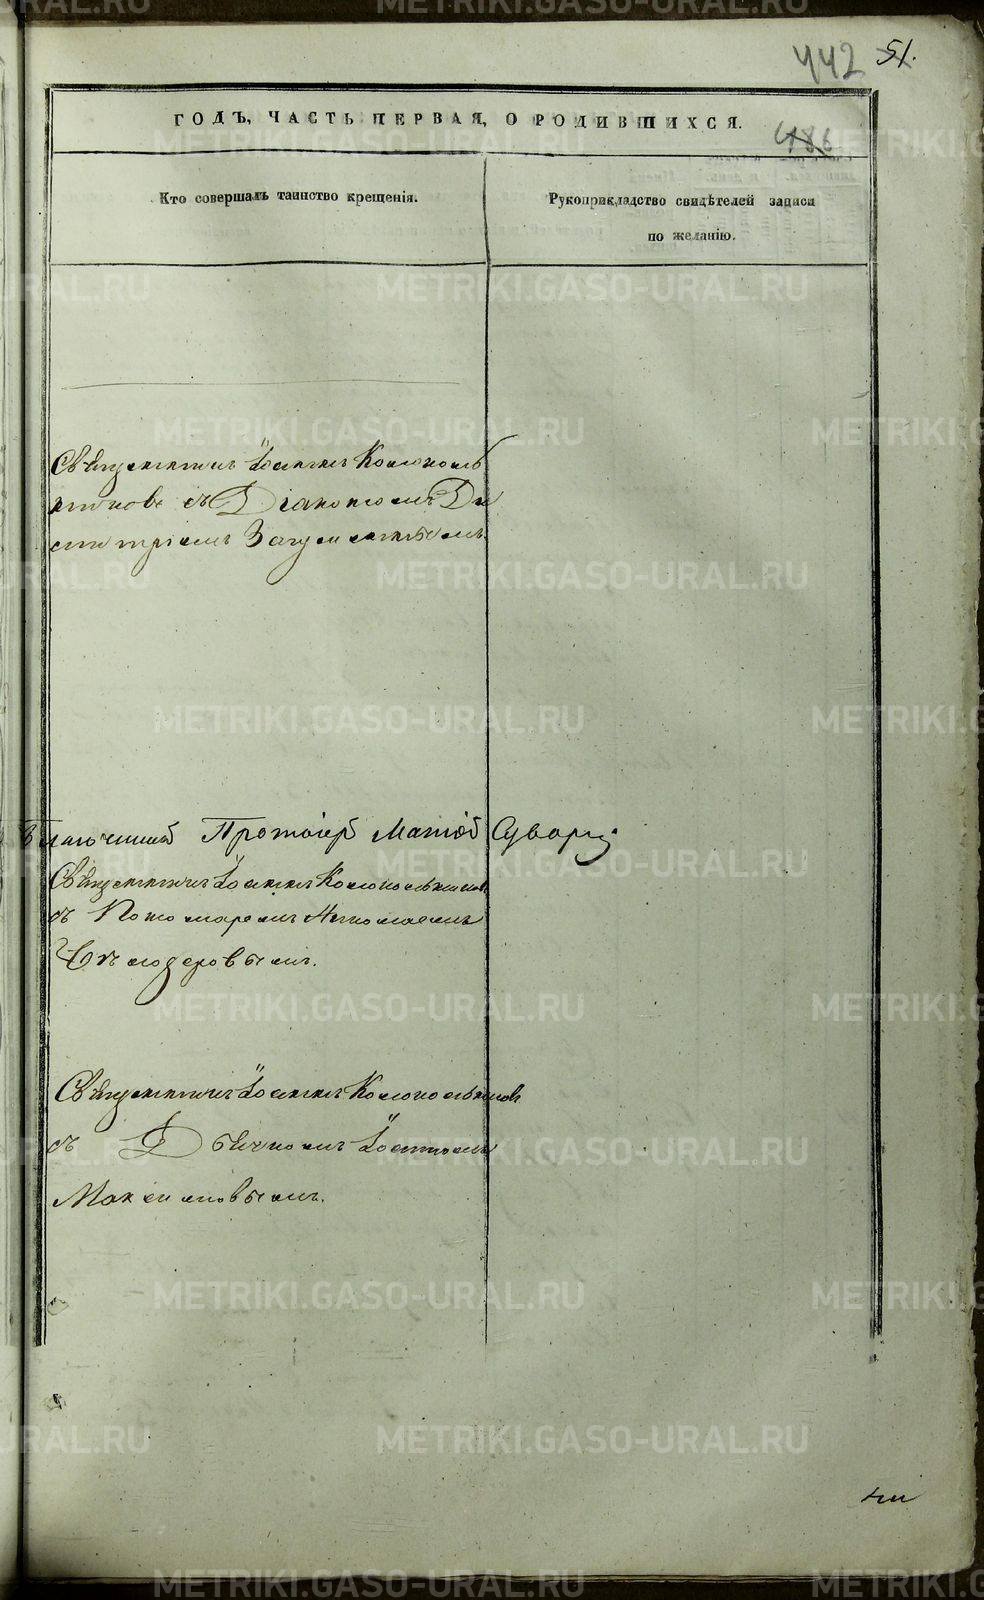 442 51.
ГОДЪ, ЧАСТЬ ПЕРВАЯ, О РОДИВШИХСЯ.
486
Кто совершалъ таинство крещенія.
Рукоприкладство свидѣтелей записи
по желанію.
Священникъ Іоаннъ Колоколь
никовъ съ Діакономъ Ди
митріемъ
Благочинный Протоіерей Матѳей Сувор
Священникъ Іоаннъ Колокольниковъ
съ Пономаремъ Николаемъ
Священникъ Іоаннъ Колокольниковъ
съ Дьячкомъ Іоанномъ
Максимовымъ.
METRIKI.GASO-URAL.RU